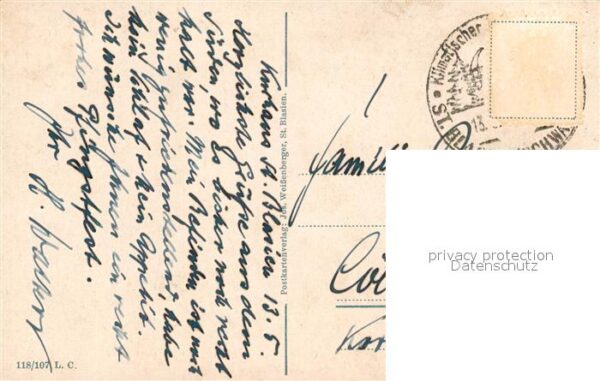 Kurhaus St. Blasien 13.5.
Herzlichste Grüße aus dem
Süden, wo es bisher noch recht
kalt war. Mein Befinden ist noch
wenig zufriedenstellend, habe
kein Schlaf & kein Appetit.
Ich wünsche Ihnen ein recht
frohes Pfingstfest.
Ihr H.
Postkartenverlag: Jos. Weißenberger, St. Blasien.
118/107 L. C.
ST. Klimatischer
13.
SCHWA
Familie
Cö
privacy protection
Datenschutz